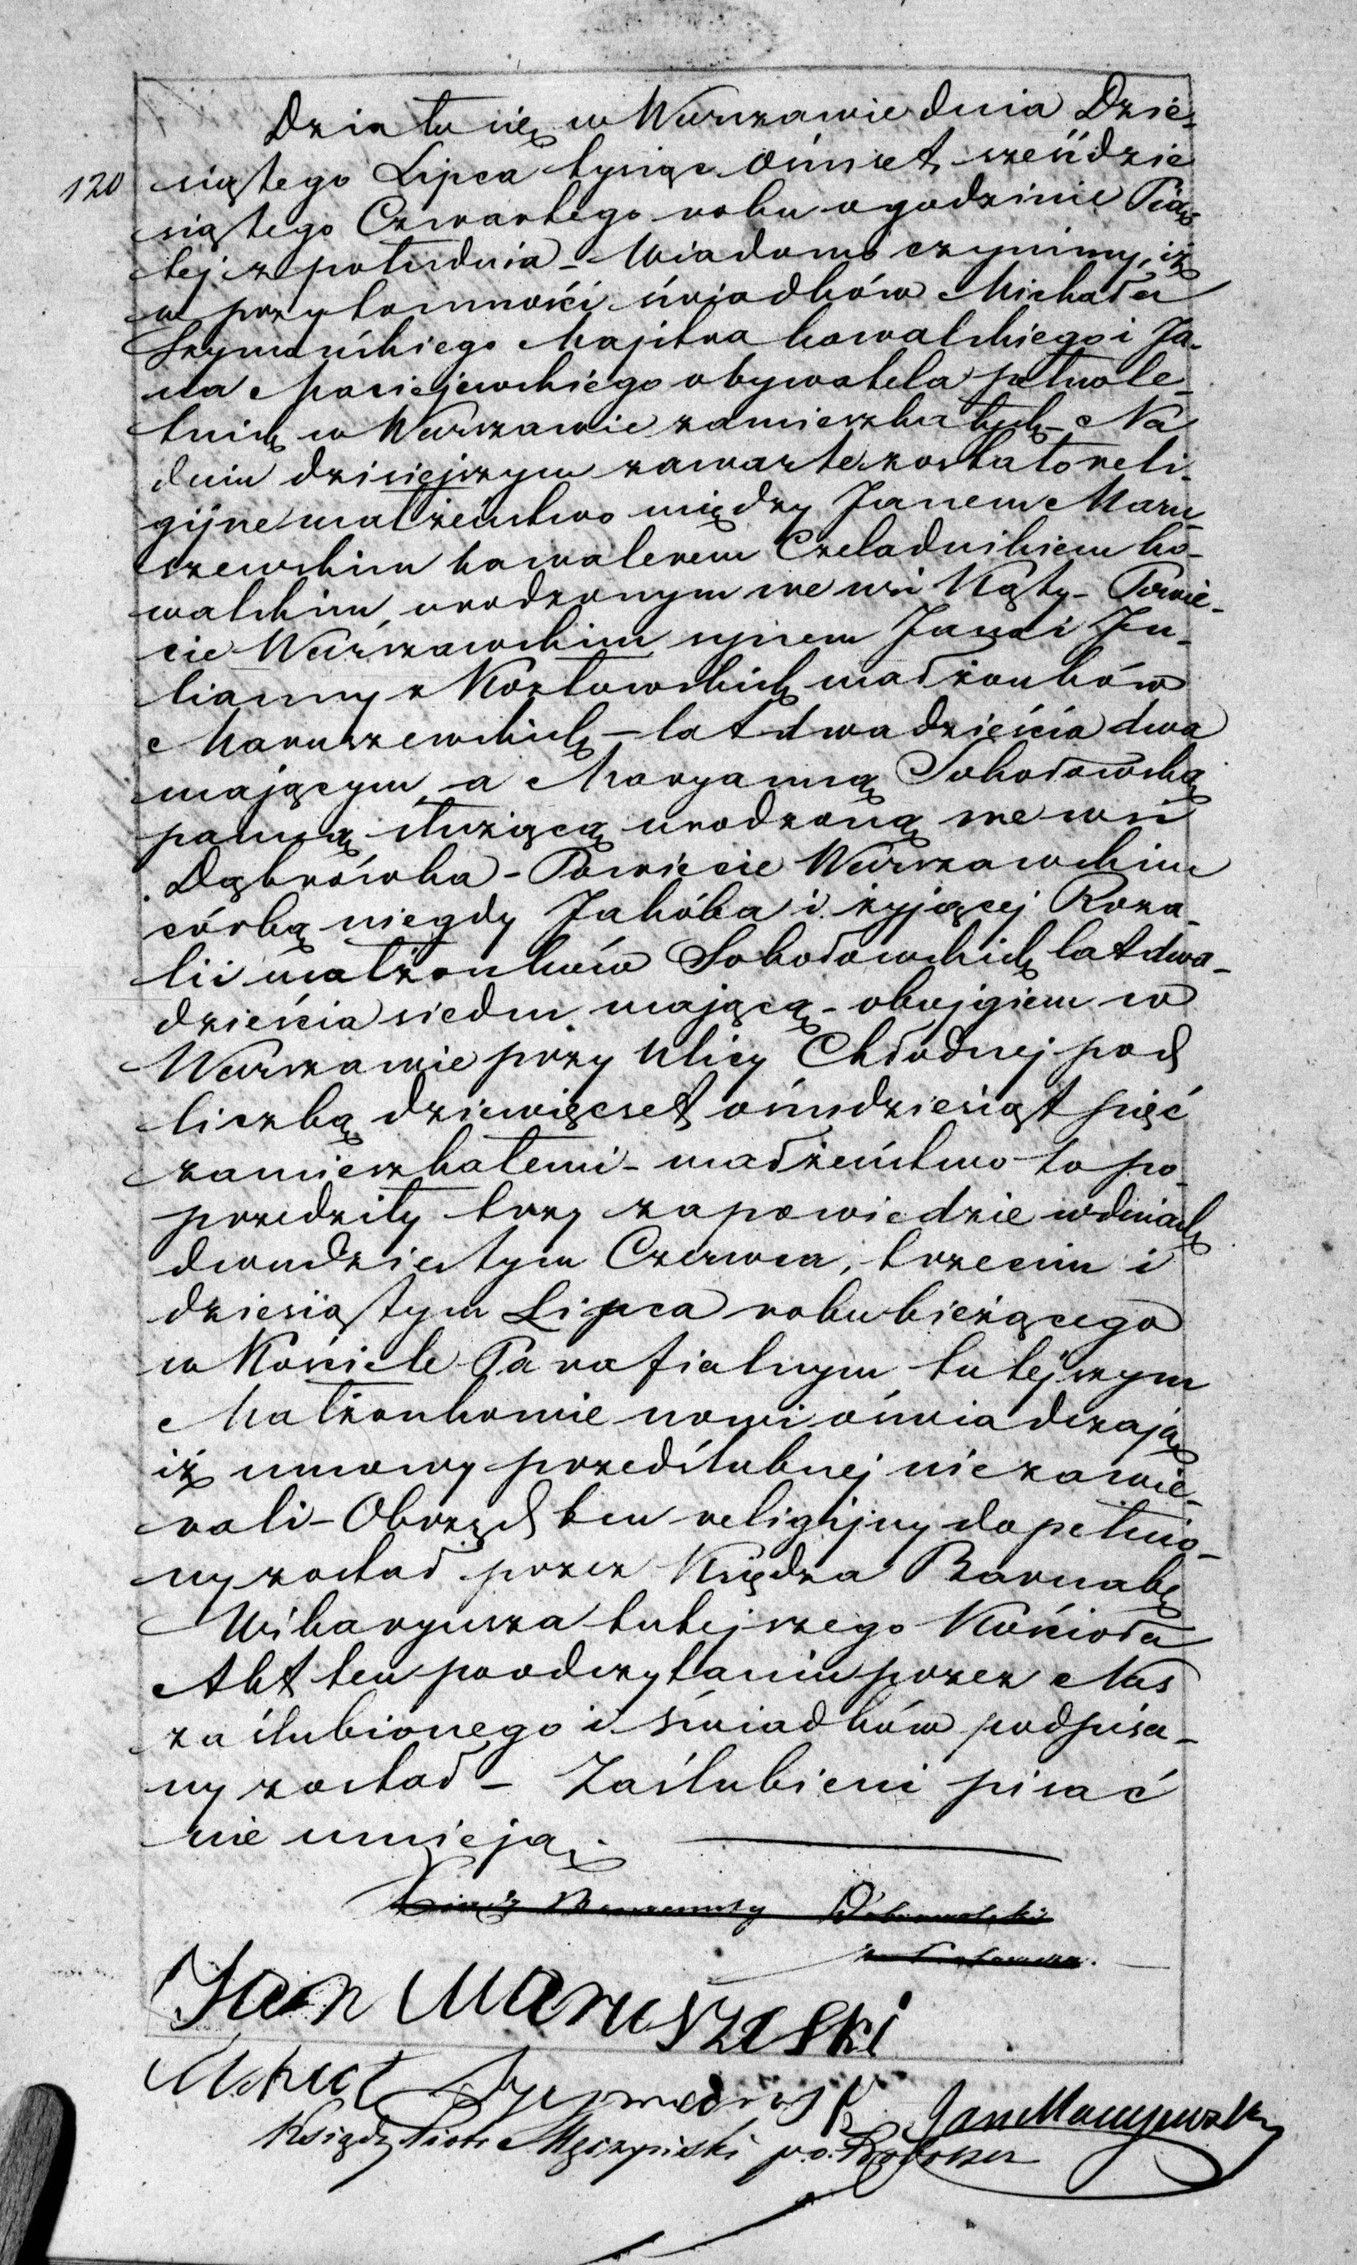 Działo się w Warszawie dnia Dzie-
120 siątego Lipca tysiąc ośmset sześdzie
siątego Czwartego roku o godzinie Pią
tej z południa - Wiadomo czynimy, iż
w przytomności świadków Michała
Szymańskiego Majstra kowalskiego i Ja-
na Maciejewskiego obywatela pełnole-
tnich w Warszawie zamieszkałych - Na
dniu dzisiejszym zawarte zostało reli-
gijne małżeństwo między Janem Maru-
szewskim kawalerem Czeladnikiem ko-
walskim, urodzonym we wsi Kąty - Powie-
cie Warszawskim synem Jana i Ju-
lianny z Kozłowskich małżonków
Maruszewskich - lat dwadzieścia dwa
mającym, a Maryanną Sokołowską
panną służącą urodzoną we wsi
Dąbrówka - Powiecie Warszawskim
córką niegdy Jakóba i żyjącej Roza-
lii małżonków Sokołowskich lat dwa-
dzieścia siedm mającą - obojgiem w
Warszawie przy Ulicy Chłodnej pod
liczbą dziewięćset ośmdziesiąt pięć
zamieszkałemi - małżeństwo to po-
przedziły trzy zapowiedzie w dniach
dwudziestym Czerwca, trzecim i
dziesiątym Lipca roku bieżącego
w Kościele Parafialnym tutejszym
Małżonkowie nowi oświadczają
iż umowy przedślubnej nie zawie-
rali - Obrządek ten religijny dopełnio-
ny został przez Księdza Barnabę
Wikaryusza tutejszego Kościoła
Akt ten po odczytaniu przez Nas
zaślubionego i świadków podpisa-
ny został - Zaślubieni pisać
nie umieją.
Jan Maruszeski
Michał Szymański Jan Maciejewski
Ksiądz Piotr p.o. Proboszcz